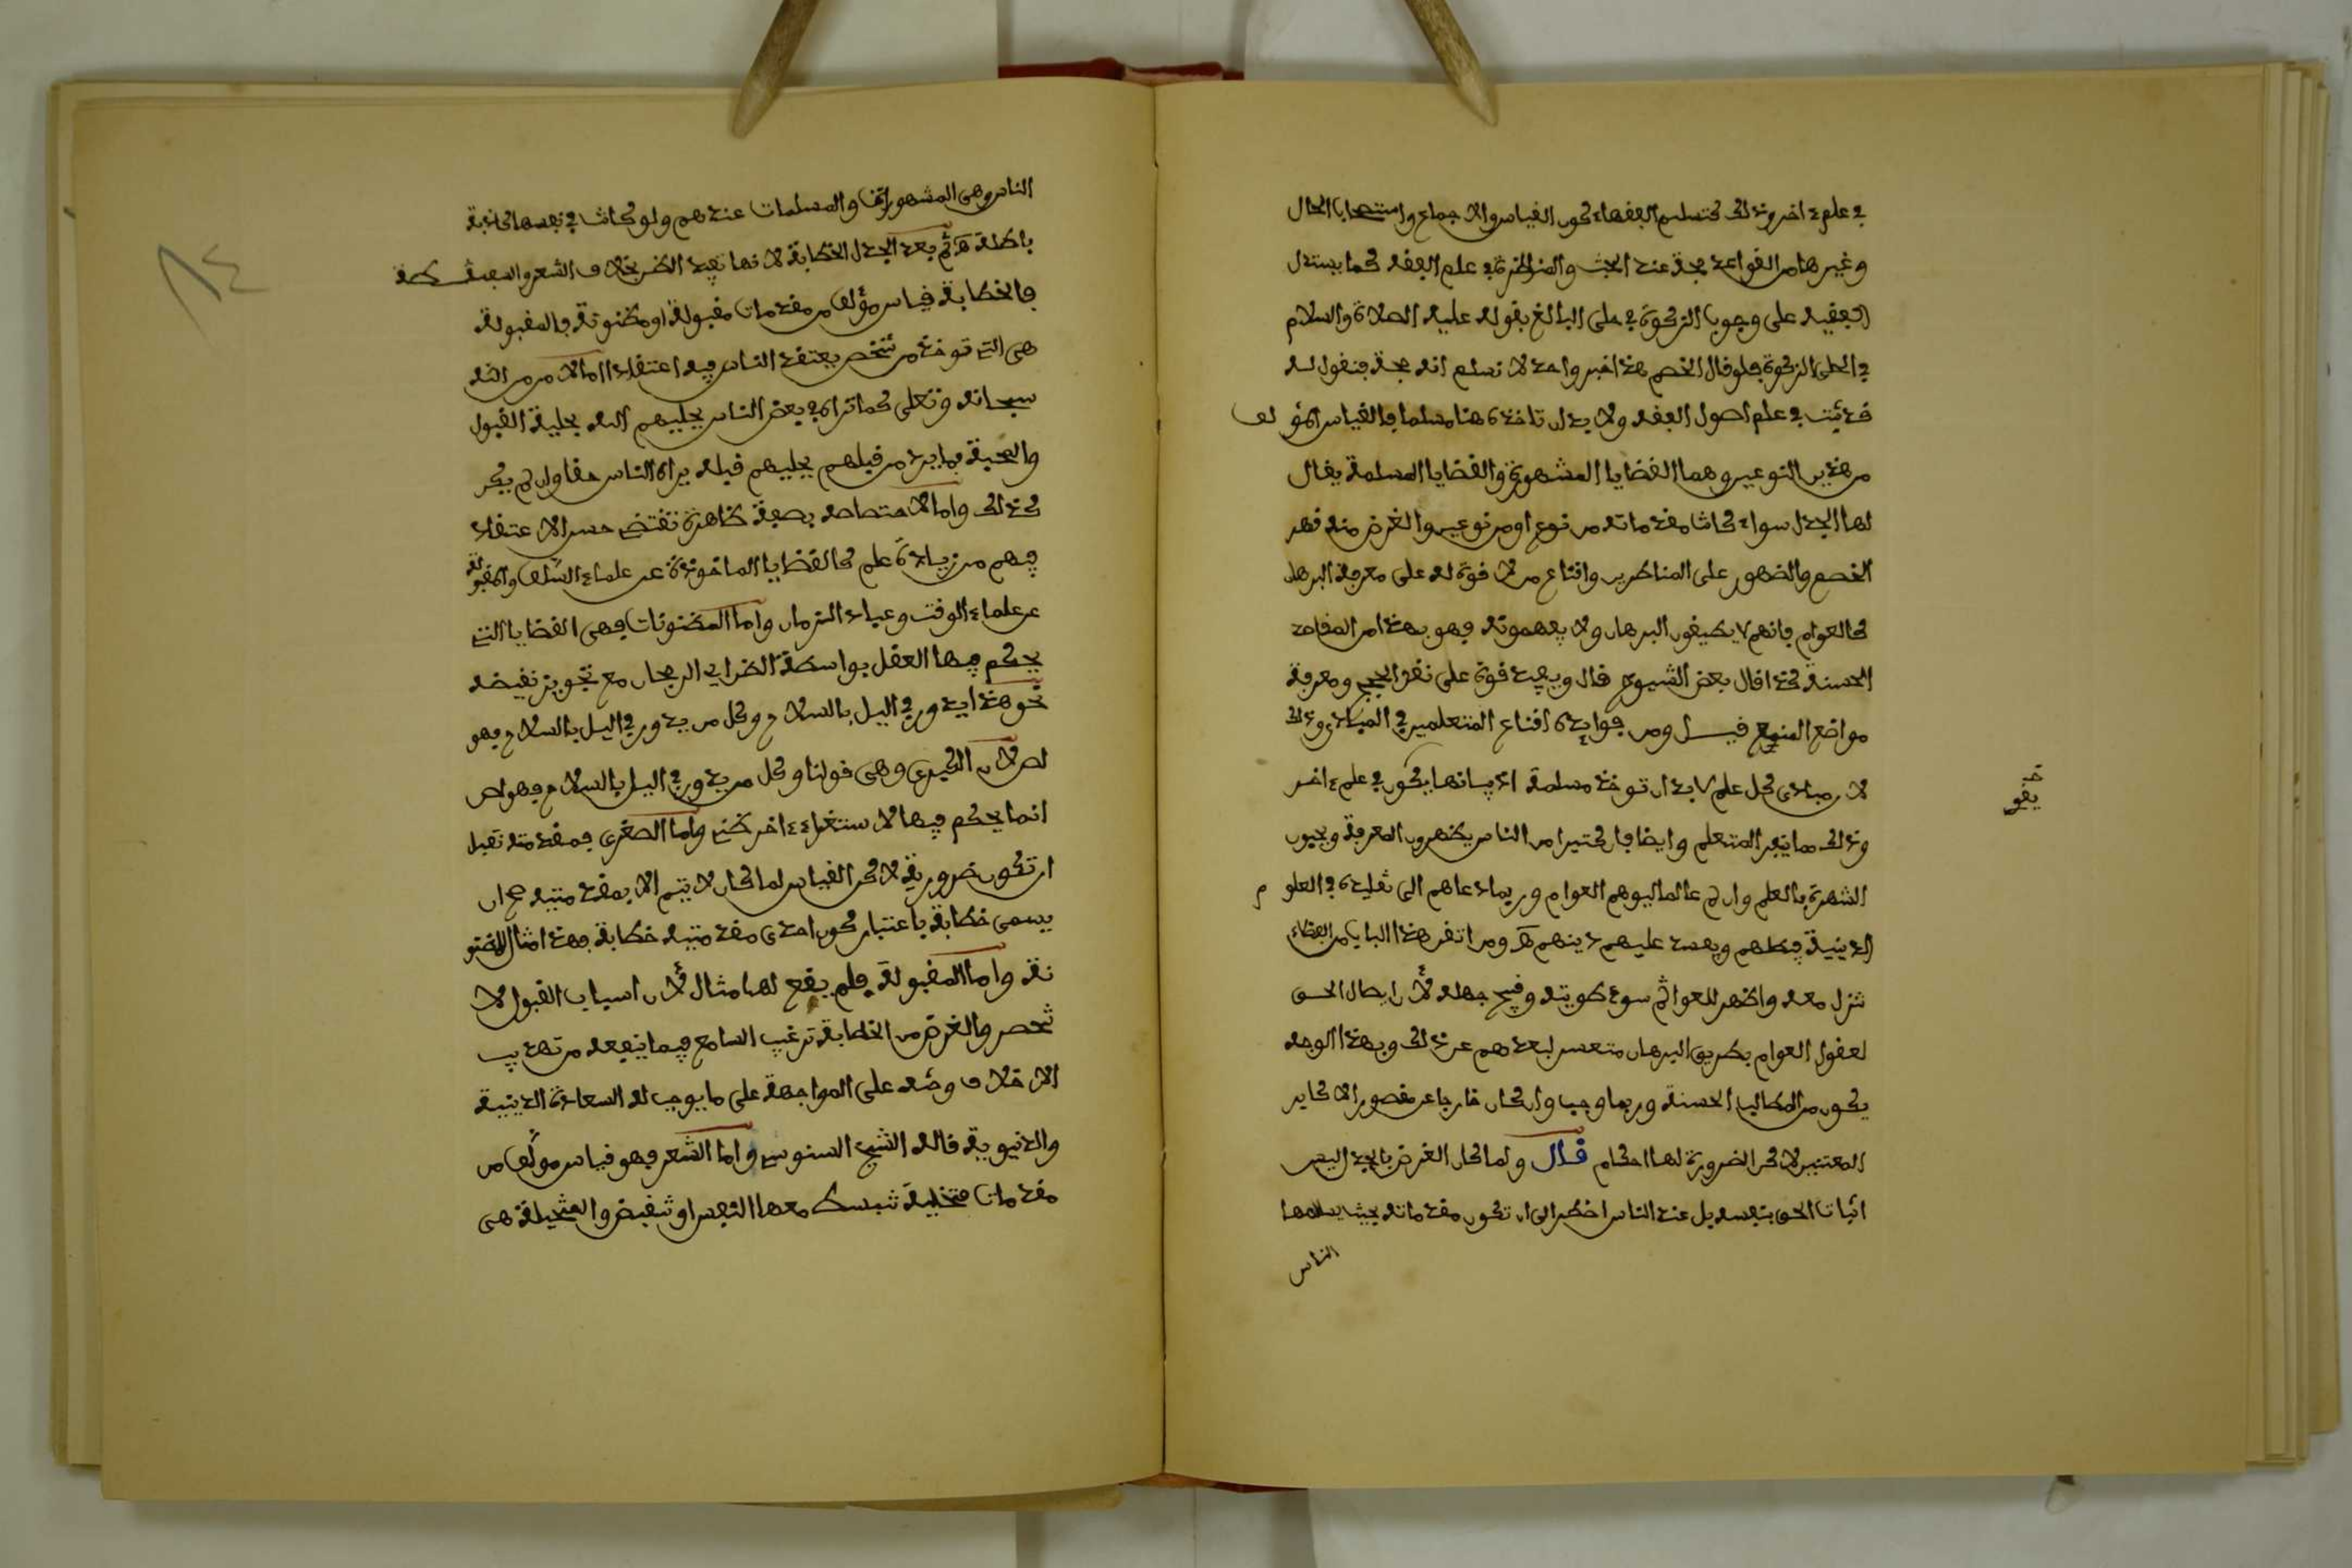 في علم ءاخر وذلك كتسليم الفقهاء كون القياس والاجماع واستصحاب الحال
وغيرها من القواعد حجة عند البحث والمناظرة في علم الفقه كما يستدل
الفقيه على وجوب الزكوة في حلى البالغ بقوله عليه الصلاة والسلام
في الحلى الزكوة فلو قال الخصم هذا خبر واحد لا نسلم انه حجة فنقول له
قد ثبت في علم اصول الفقه ولا بد ان تاخذه هنا مسلما فالقياس المؤلف
من هذين النوعين وهما القضايا المشهورة والقضايا المسلمة يقال
لها الجدل سواء كانت مقدماته من نوع او من نوعين والغرض منه قهر
الخصم والضهور على المناظرين واقناع من لا قوة له على معرفة البرهان
كالعوام فانهم لا يطيقون البرهان ولا يفهمونه فهو بهذا من المقاصد
الحسنة كذا قال بعض الشيوخ قال ويفيد قوة على نقض الحجج ومعرفة
مواضع المنع قيل ومن فوايده اقناع المتعلمين في المبادي وذلك
لان مبادي كل علم لا بد ان توخذ مسلمة اذ بيانها يكون في علم ءاخر
وذلك مما ينفر المتعلم وايضا فان كثيرا من الناس يظهرون المعرفة ويحبون
الشهرة بالعلم وان لم عالما ليوهم العوام وربما دعاهم الى تقليده في العلوم
الدينية فيظلهم ويفسد عليهم دينهم ومن اتقن هذا الباب من الفضلاء
تنزل معه واظهر للعوام سوء طويته وقبح جهله لأن ايصال الحق
لعقول العوام بطريق البرهان متعسر لبعدهم عن ذلك وبهذا الوجه
يكون من المطالب الحسنة وربما وجب وان كان خارجا عن مقصور الاكابر
المعتبر لاكن الضرورة لها احكام قال ولما كان الغرض بالجدل ليس
اثبات الحق بنفسه بل عند الناس اضطر الى ان تكون مقدماته بحيث يسلمها
الناس
يقو
الناس وهي المشهورات والمسلمات عندهم ولو كانت في نفسها كاذبة
باطلة ثم بعد الجدل الخطابة لانها تفيد الظن بخلاف الشعر والسفسطة
فالخطابة قياس مؤلف من مقدمات مقبولة او مظنونة فالمقبولة
هي التي توخذ من شخص يعتقد الناس فيه اعتقادا اما لامر من الله
سبحانه وتعلى كما تراه في بعض الناس يحليهم الله بحلية القبول
والمحبة فما يرد من قبلهم يحليهم قبله يراه الناس حقا وان لم يكن
كذلك واما لاختصاصه بصفة ظاهرة تقتضي حسن الاعتقاد
فيهم من زيادة علم كالقضايا الماخوذة عن علماء السلف والمقبولة
عن علماء الوقت وعباد الزمان واما المظنونات فهي القضايا التي
يحكم فيها العقل بواسطة الظن اي الرجحان مع تجويز نقيضه
نحو هذا يدور في اليل بالسلاح وكل من يدور في اليل بالسلاح فهو
لص لان الكبرى وهي قولنا وكل من يدور في اليل بالسلاح فهو لص
انما يحكم فيها لاستقراء ءاخر ظني واما الصغرى فمقدمته تقبل
ان تكون ضرورية لاكن القياس لما كان لا يتم الا بمقدمتيه صح ان
يسمى خطابة باعتبار كون احدى مقدمتيه خطابة فهذا مثال للمظنو
نة واما المقبولة فلم يقع لها مثال لأن اسباب القبول لا
تنحصر والغرض من الخطابة ترغيب السامع فيما ينفعه من تهذيب
الاخلاق وحثه على المواجهة على ما يوجب له السعادة الدينية
والدنيوية قاله الشيخ السنوسي واما الشعر فهو قياس مولف من
مقدمات متخيلة تنبسط معها النفس او تنقبض والمتخيلة هي